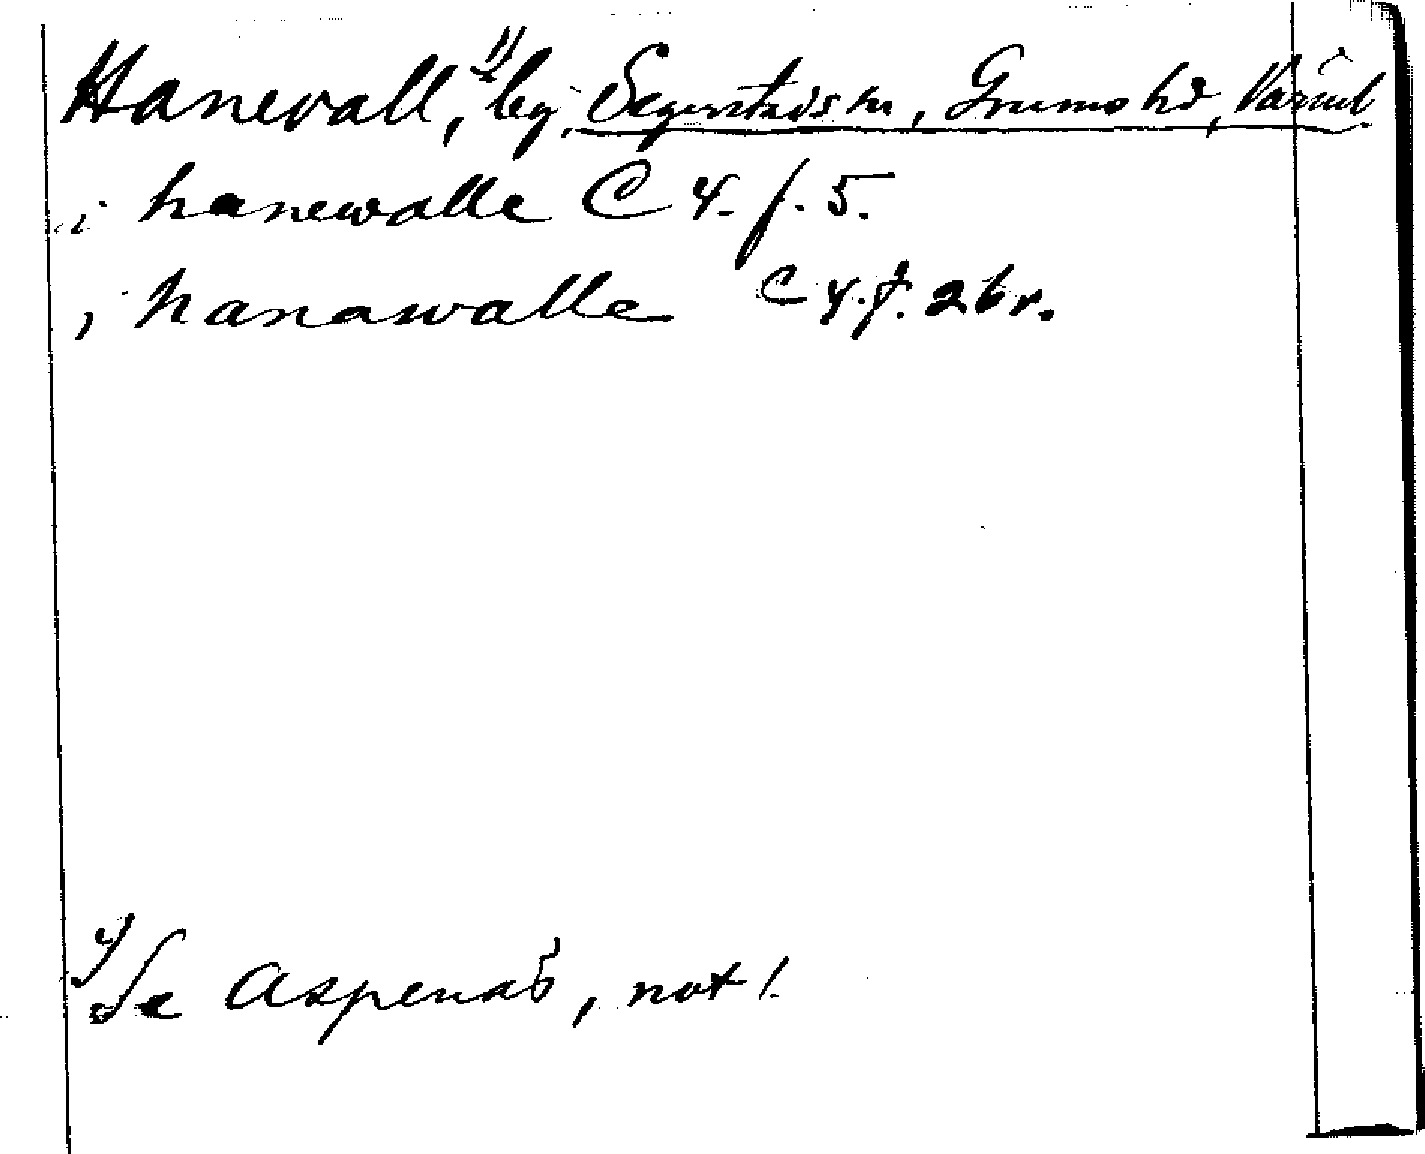 Hanevall, by, Segerstads sn, Grums hd, Värml
i hanewalle C 4. f. 5.
i hanawalle C 4. f. 26 r.
Se Aspenäs, not 1.